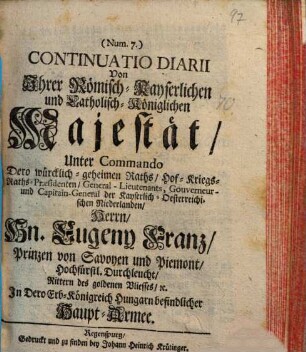 97
(Num. 7.)
CONTINUATIO DIARII
Von
Ihrer Römisch-Kayserlichen
und Catholisch-Königlichen
Majestät/
Unter Commando
Dero würcklich-geheimen Raths/ Hof-Kriegs-
Raths-Præsidenten/ General-Lieutenants, Gouverneur-
und Capitain-General der Kayserlich-Oesterreichi-
schen Niederlanden/
Herrn/
Hn. Eugeny Franz/
Prinzen von Savoyen und Piemont/
Hochfürstl. Durchleucht/
Rittern des goldenen Vliesses/ ꝛc.
In Dero Erb-Königreich Hungarn befindlicher
Haupt-Armee.
Regenspurg/
Gedruckt und zu finden bey Johann Heinrich Krütinger.